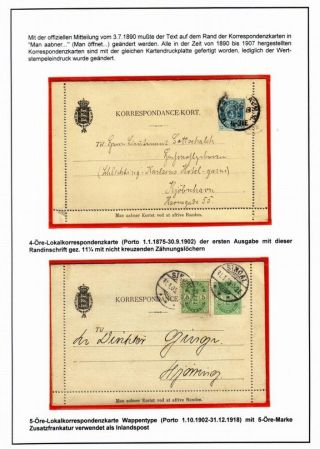 Mit der offiziellen Mitteilung vom 3.7.1890 mußte der Text auf dem Rand der Korrespondenzkarten in
"Man aabner..." (Man öffnet...) geändert werden. Alle in der Zeit von 1890 bis 1907 hergestellten
Korrespondenzkarten sind mit der gleichen Kartendruckplatte gefertigt worden, lediglich der Wert-
stempeleindruck wurde geändert.
KORRESPONDANCE-KORT.
Til Herrn Lieutenant Gottschalch
Kjøbenhavn
Havnegade 55
Man aabner Kortet ved at afrive Randen.
4-Öre-Lokalkorrespondenzkarte (Porto 1.1.1875-30.9.1902) der ersten Ausgabe mit dieser
Randinschrift gez. 11¼ mit nicht kreuzenden Zähnungslöchern
KORRESPONDANCE
SINDAL
SINDAL
5
5
Til
Hjørring
Man aabner Kortet ved at afrive Randen.
5-Öre-Lokalkorrespondenzkarte Wappentype (Porto 1.10.1902-31.12.1918) mit 5-Öre-Marke
Zusatzfrankatur verwendet als Inlandspost